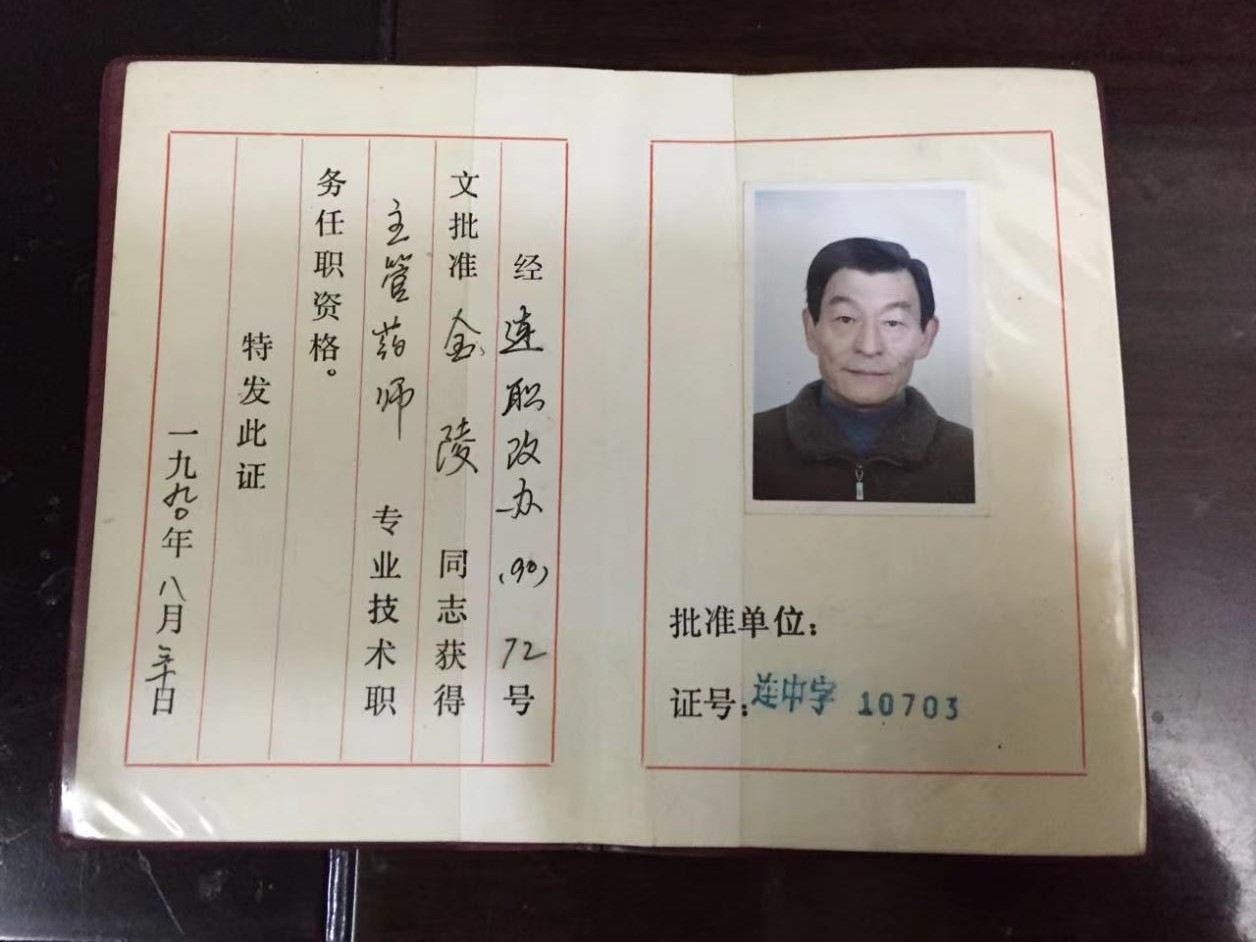 经连职改办(90)72号
文批准金陵同志获得
主管药师专业技术职
务任职资格。
特发此证
一九九〇年八月三十日
批准单位:
证号:连中字 10703